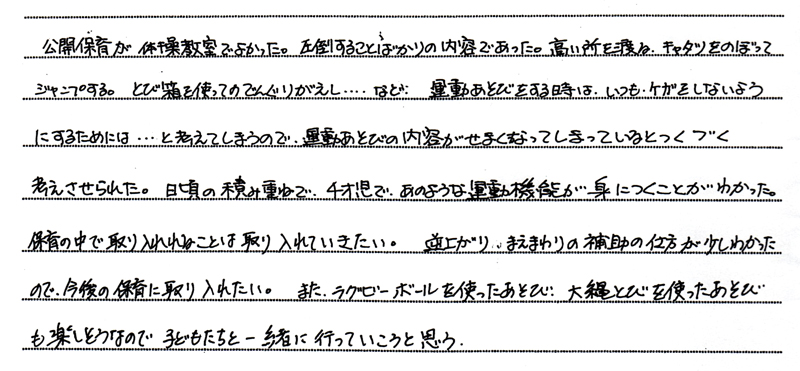 公開保育が体操教室でよかった。圧倒することばかりの内容であった。高い所を渡る、キャタツをのぼって
ジャンプする。とび箱を使ってのでんぐりがえし…. など: 運動あそびをする時は、いつも、ケガをしないよう
にするためには…と考えてしまうので、運動あそびの内容がせまくなってしまっているとつくづく
考えさせられた。日頃の積み重ねで、4才児で、あのような運動機能が身につくことがわかった。
保育の中で取り入れれることは取り入れていきたい。逆上がり、まえまわりの補助の仕方が少しわかった
ので、今後の保育に取り入れたい。また、ラグビーボールを使ったあそび: 大縄とびを使ったあそび
も楽しそうなので子どもたちと一緒に行っていこうと思う.